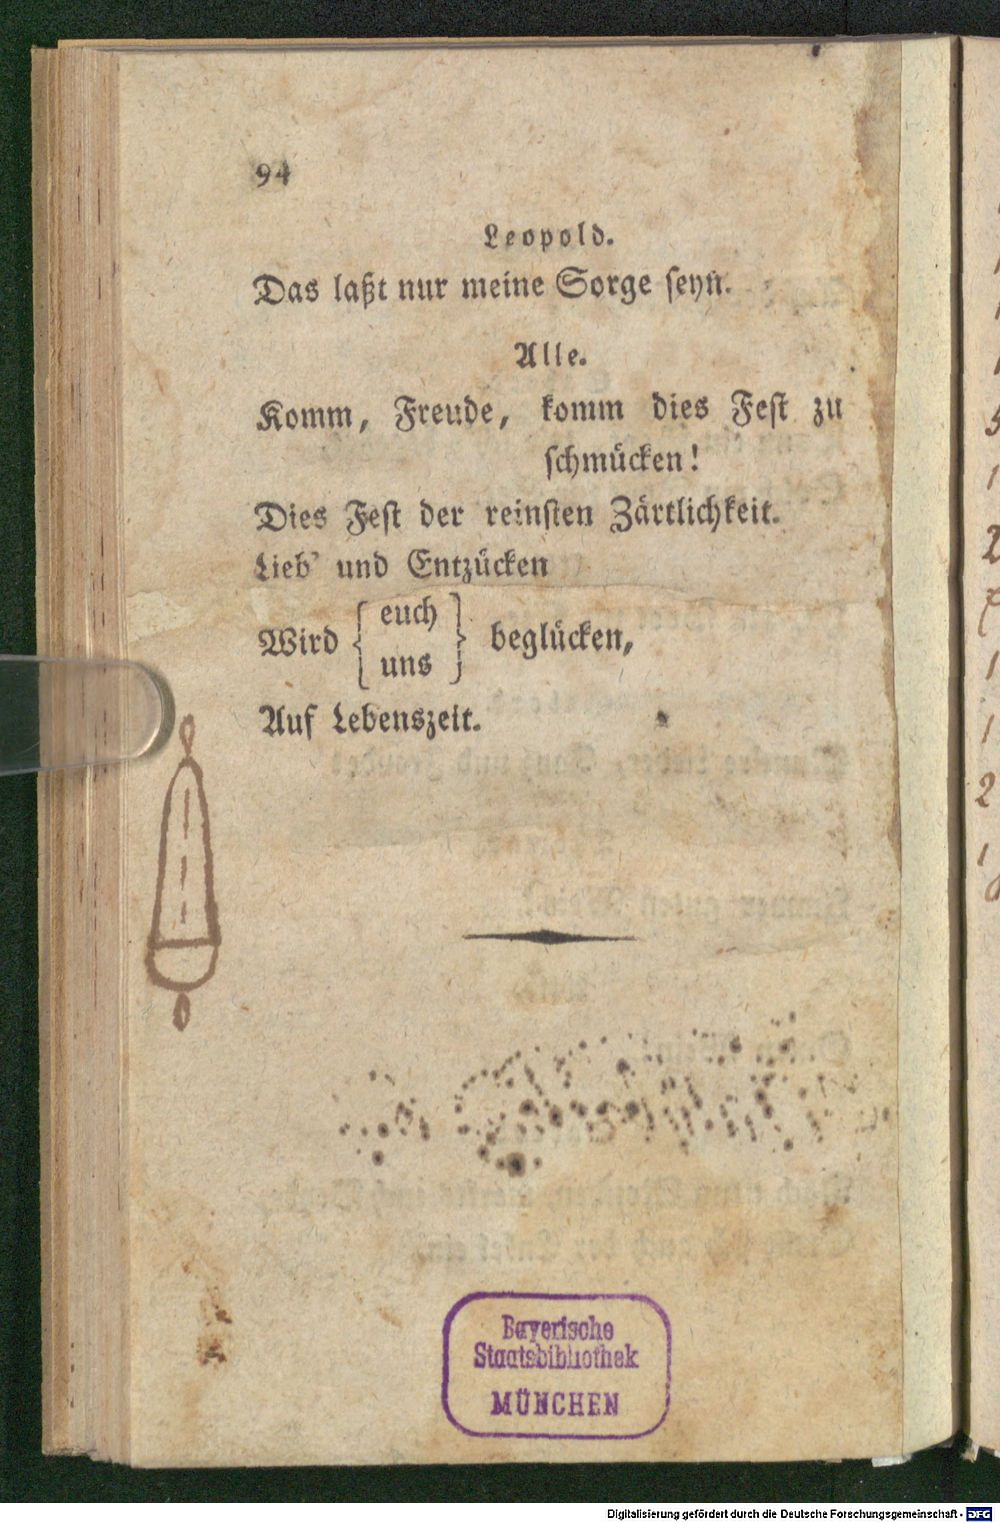 94
Leopold.
Das laßt nur meine Sorge seyn.
Alle.
Komm, Freude, komm dies Fest zu
schmücken!
Dies Fest der reinsten Zärtlichkeit.
Lieb' und Entzücken
Wird { euch } beglücken,
uns
Auf Lebenszeit.
Bayerische
Staatsbibliothek
MÜNCHEN
Digitalisierung gefördert durch die Deutsche Forschungsgemeinschaft - DFG